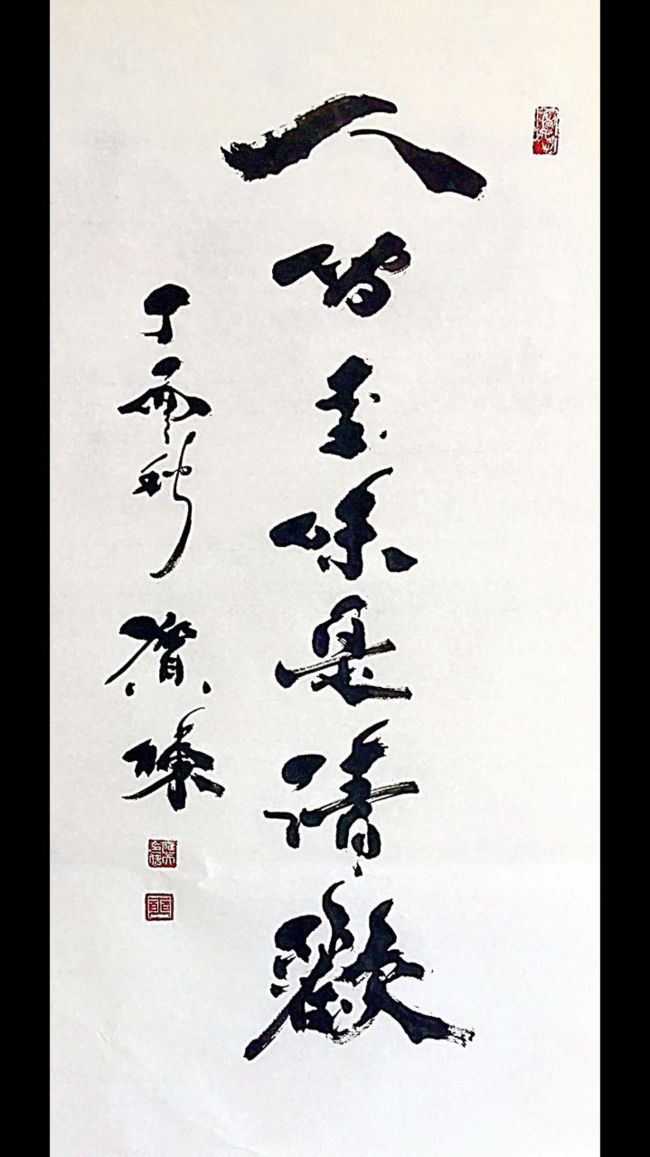 人間至味是清歡
丁酉秋